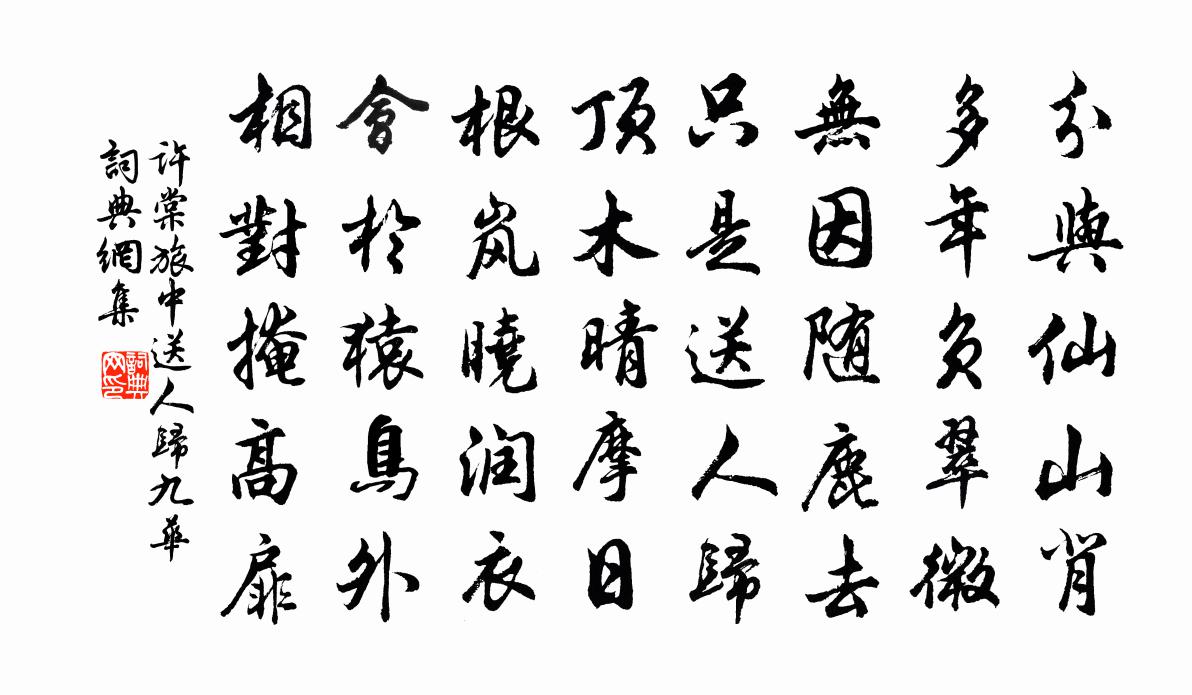 分與仙山背
多年負翠微
無因随鹿去
只是送人歸
頂木晴摩日
根岚曉润衣
會於猿鳥外
相對掩高扉
許棠旅中送人歸九華
詞典網集
詞典网印